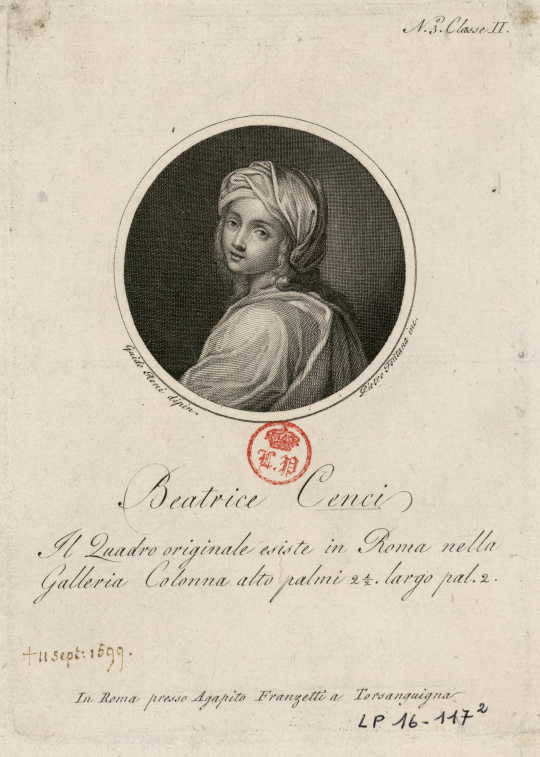 N.º 3. Classe II.
Guido Reni dipin.
Pietro Fontana inc.
L.P
Beatrice Cenci
Il Quadro originale esiste in Roma nella
Galleria Colonna alto palmi 2 ½. largo pal. 2.
† 11 sept: 1599.
In Roma presso Agapito Franzetti a Torsanguigna
LP 16-117²